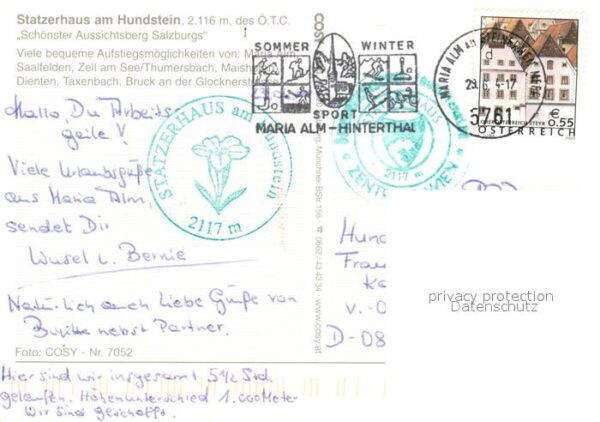 Statzerhaus am Hundstein, 2.116 m, des Ö.T.C.
„Schönster Aussichtsberg Salzburgs"
Viele bequeme Aufstiegsmöglichkeiten von: Maria Alm,
Saalfelden, Zell am See/Thumersbach, Maish
Dienten, Taxenbach, Bruck an der Glocknerstr
Hallo, Du Arbeits
geile!
Viele Urlaubsgrüße
aus Maria Alm,
sendet Dir
Wusel u. Bernie
Natürlich auch liebe Grüße von
Birgitta nebst Partner.
Foto: COSY - Nr. 7052
Hier sind wir insgesamt 5½ Std.
gelaufen. Höhenunterschied 1.000 Meter
Wir sind geschafft.
STATZERHAUS am Hundstein
2117 m
COSY
Münchner BStr. 156
0662/43 43 34
www.cosy.at
SOMMER WINTER
SPORT
MARIA ALM-HINTERTHAL
HAUS
2117 m
ZENT WIEN
MARIA ALM AM STEINERNEN MEER
29.6.4-17
5761
OBERÖSTERREICH STEYR
€ 0.55
ÖSTERREICH
Hun
Frau
Ka
v.-0
D-08
privacy protection
Datenschutz